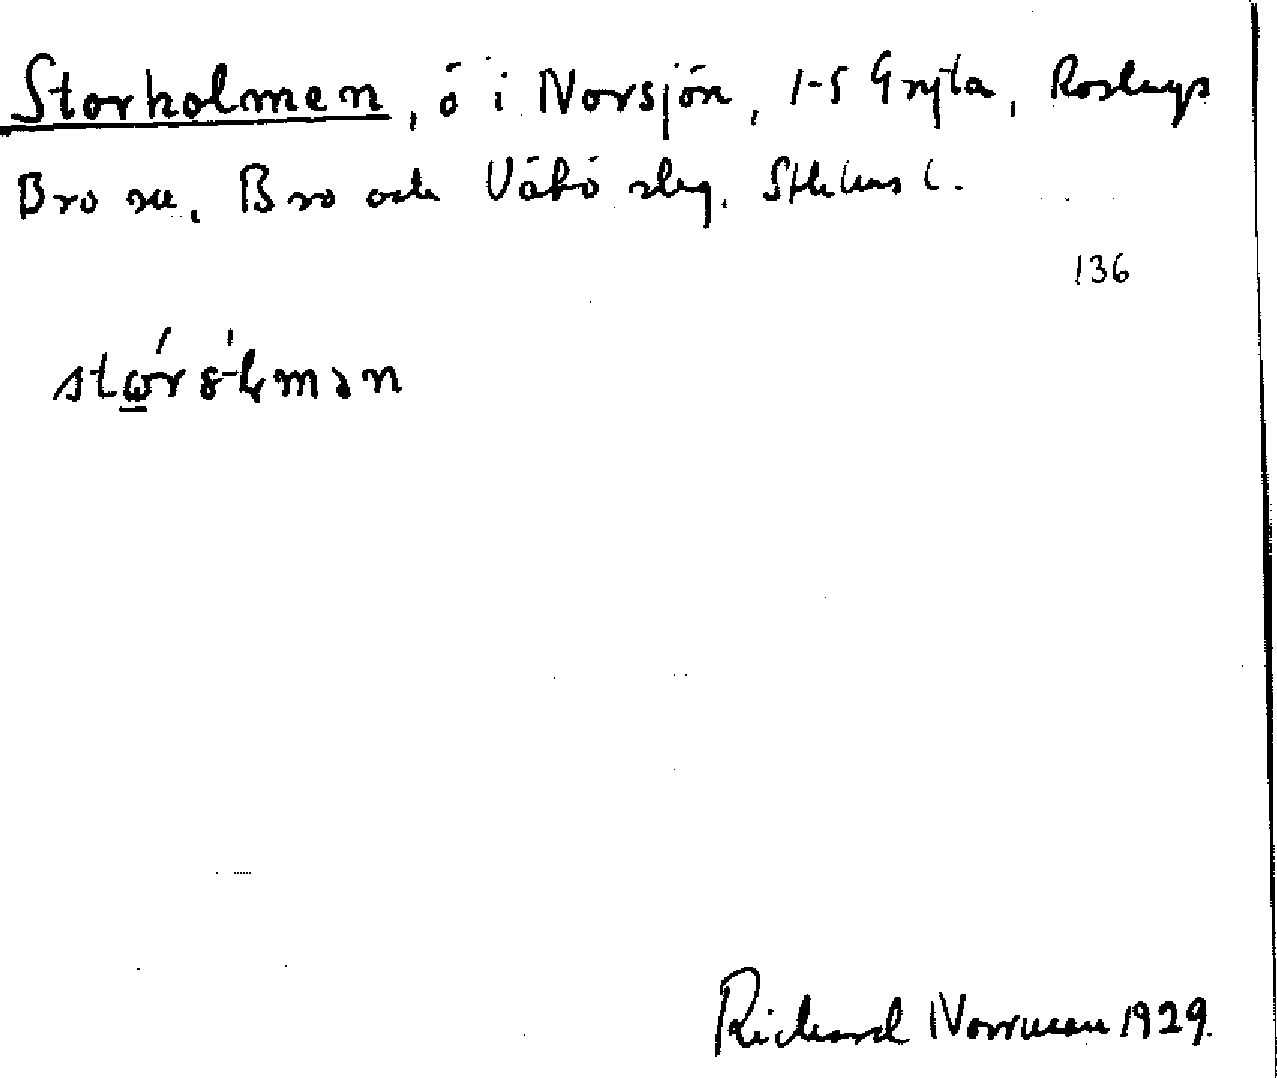 Storholmen, ö i Norsjön, 1-5 Gryta, Roslags
Bro sn, Bro och Vätö slg. Sthlms l.
136
Richard Norrman 1929.